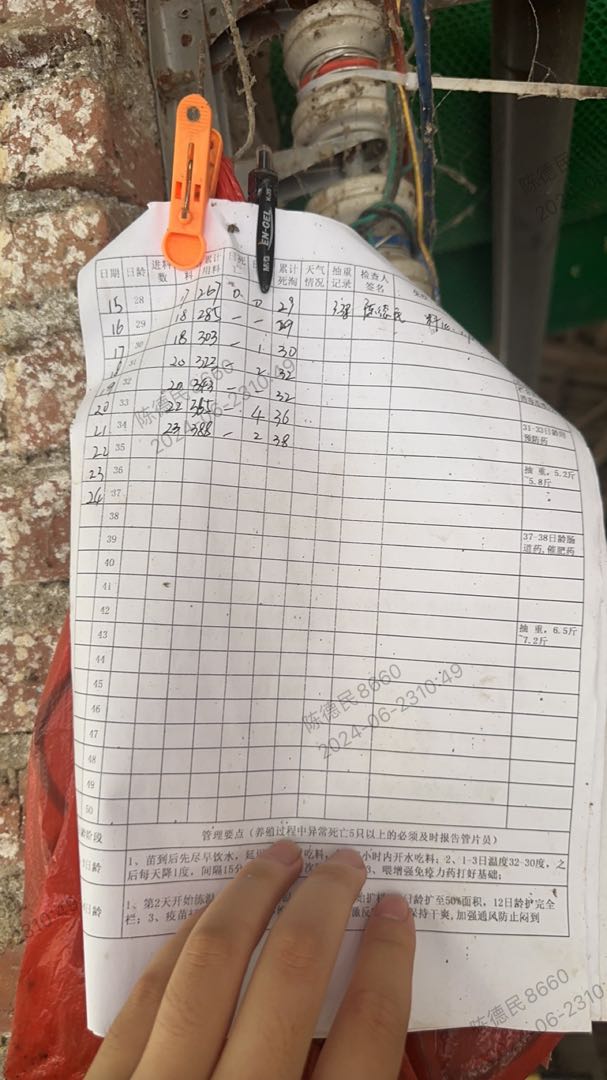 日期 日龄 进料数 料 累计用料 日死 累计死淘 天气情况 抽重记录 检查人签名
15 28 17 267 0 0 29 陈德民
16 29 18 285 — — 29
17 30 18 303 — 1 30
18 31 20 323 2 32
19 32 20 343 — — 32
20 33 22 365 — 4 36
21 34 23 388 — 2 38 31-33日龄用预防药
22 35
23 36 抽重，5.2斤~5.8斤
24 37
38
39 37-38日龄肠道药，催肥药
40
41
42
43 抽重，6.5斤~7.2斤
44
45
46
47
48
49
50
龄阶段 管理要点（养殖过程中异常死亡5只以上的必须及时报告管片员）
日龄 1、苗到后先尽早饮水，延 吃料， 小时内开水吃料；2、1-3日温度32-30度，之
后每天降1度，间隔15分 次 3、喂增强免疫力药打好基础；
日龄 1、第2天开始炼 始扩栏 日龄扩至50%面积，12日龄扩完全
栏；3、疫苗 激反 保持干爽，加强通风防止闷到
陈德民8660
2024-06-2310:49
陈德民8660
2024-06-2310:49
陈德民8660